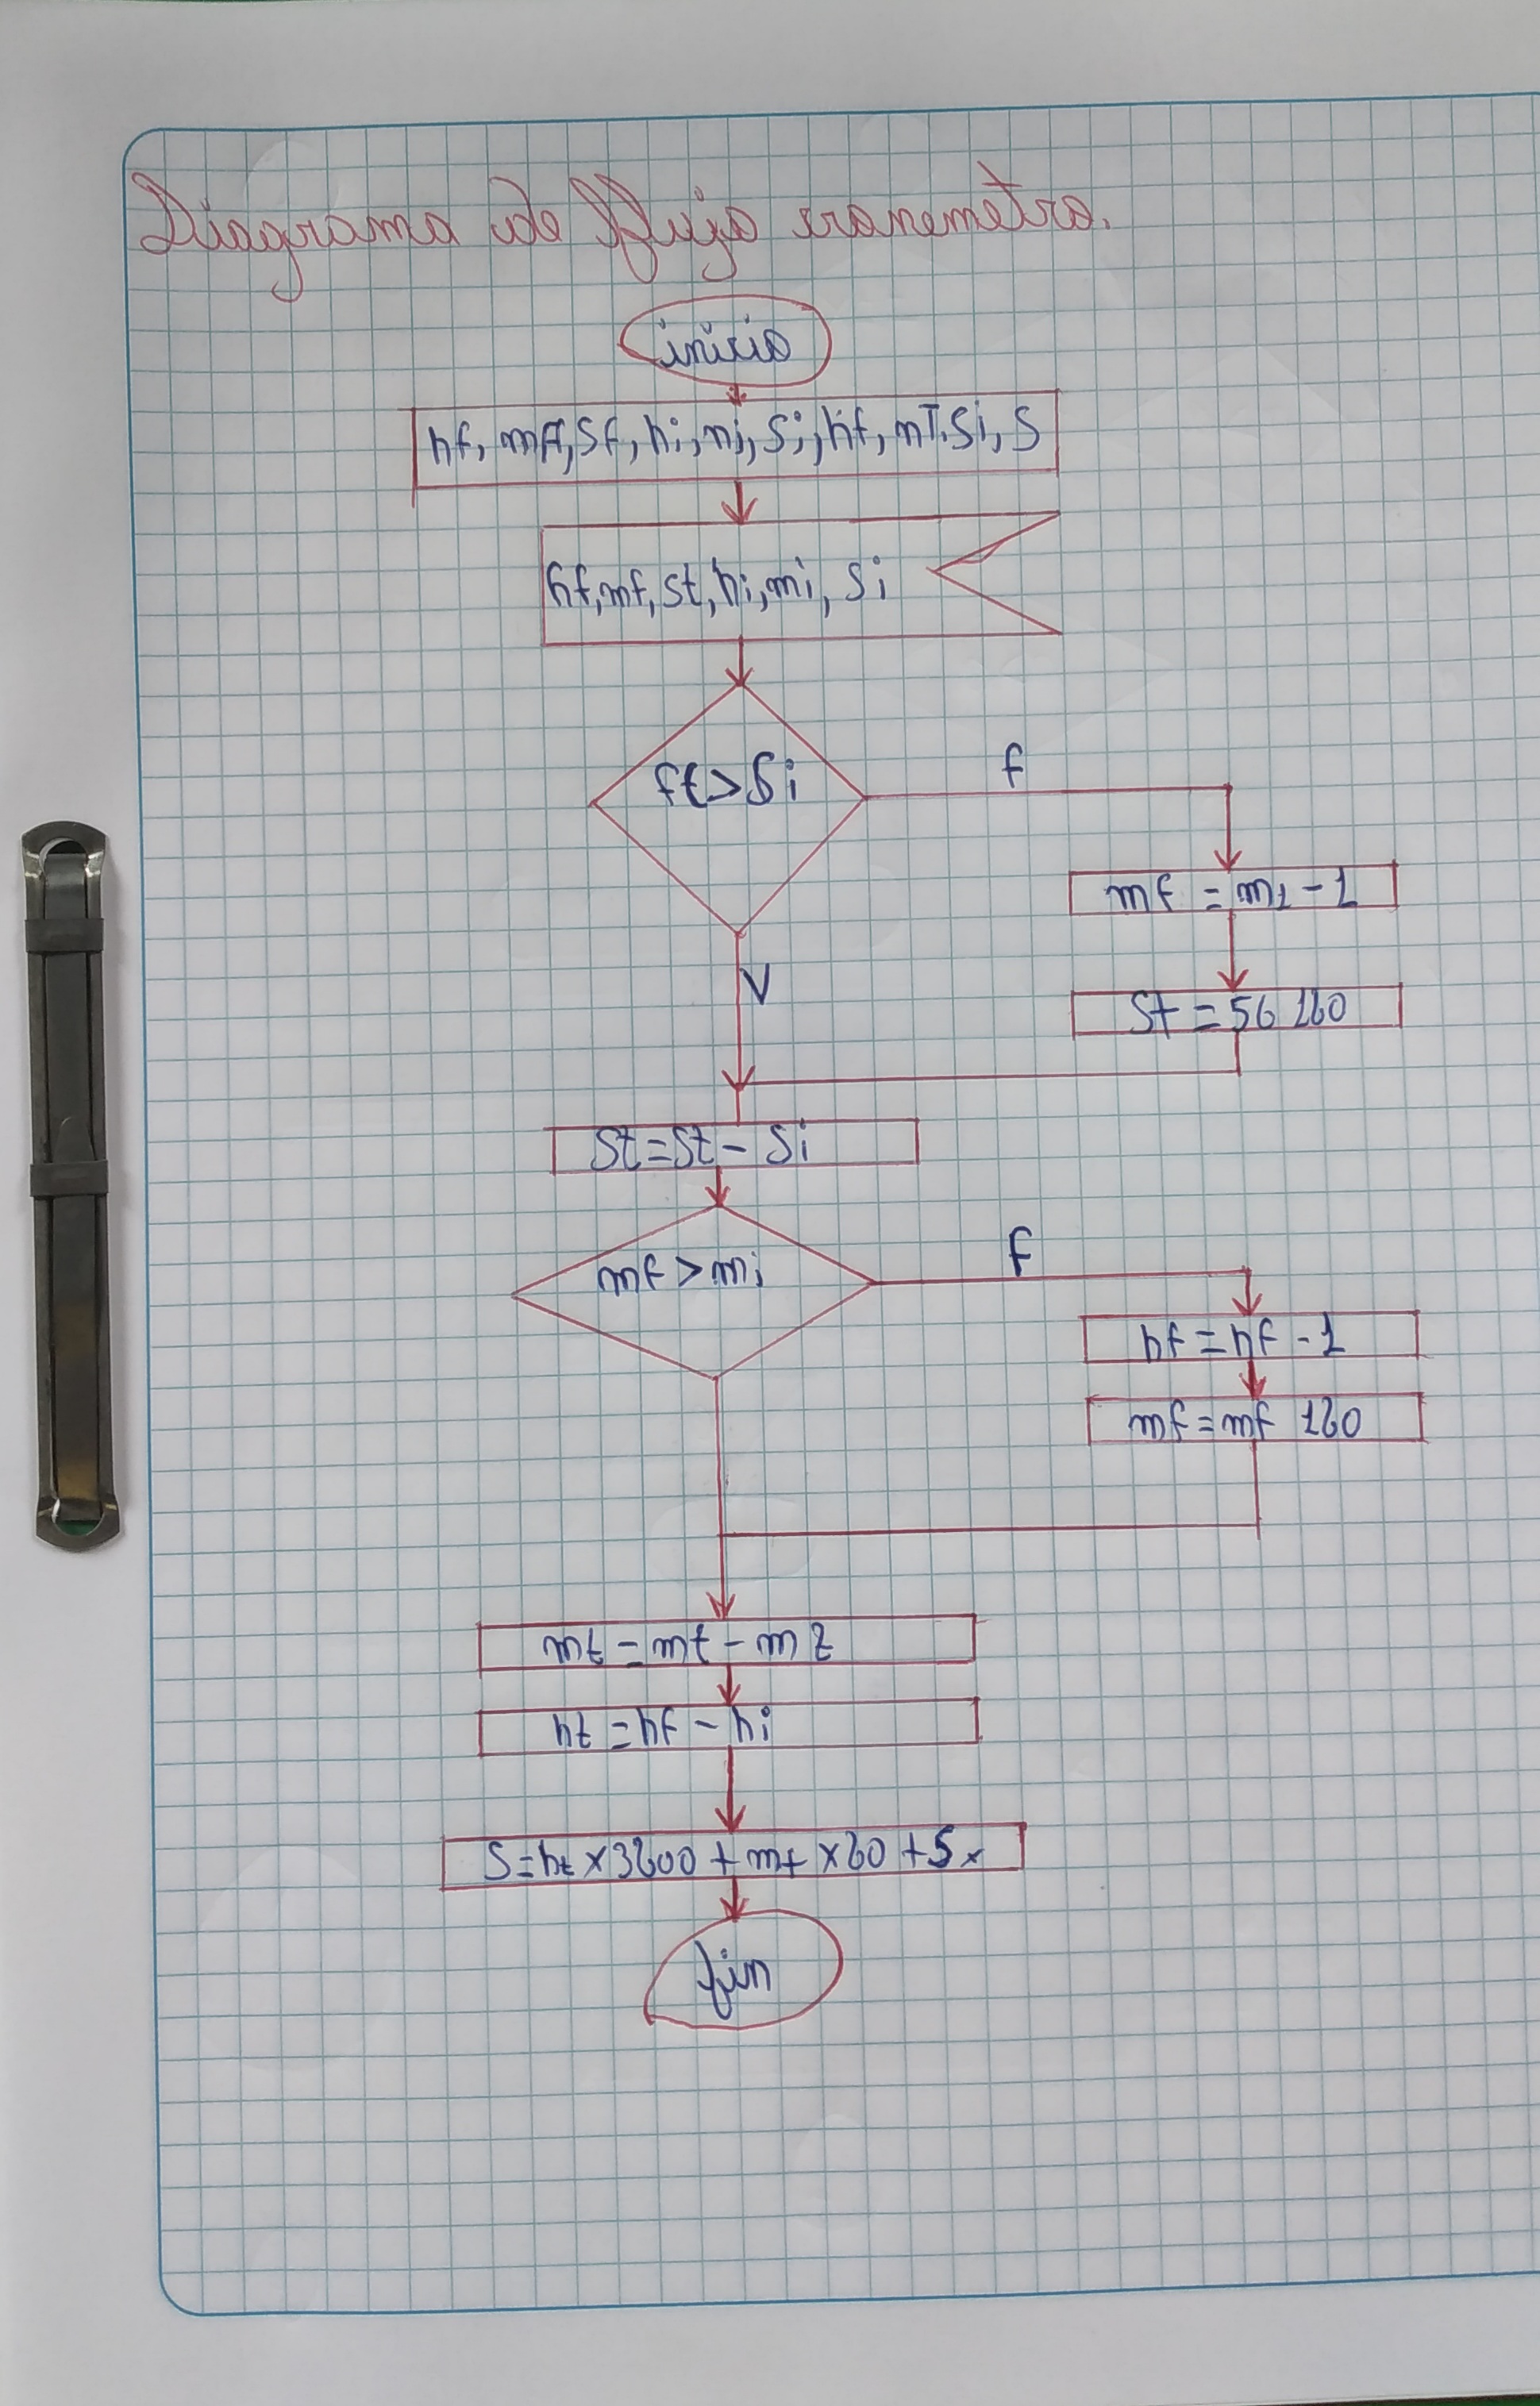 Diagrama de flujo cronometro.
inicio
hf, mff, Sf, hi, ni, Si, hf, mT, Si, S
hf, mf, St, hi, mi, Si
ft > Si
f
mf = m1 - 1
V
St = 56 160
St = St - Si
mf > mi
f
hf = hf - 1
mf = mf 160
mt = mt - m2
ht = hf - hi
S = ht x 3600 + mt x 60 + S x
fin